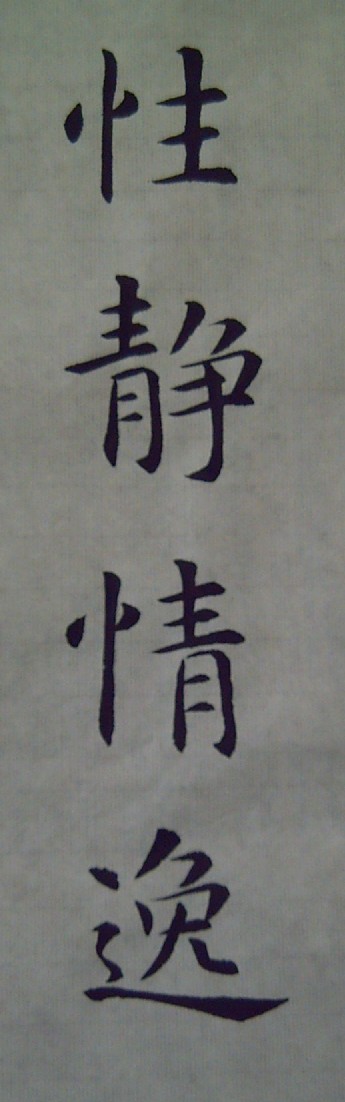 性静情逸